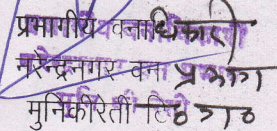 प्रभागीय वनाधिकारी
नरेन्द्रनगर वन प्रभाग
मुनिकीरेती टि०ग०